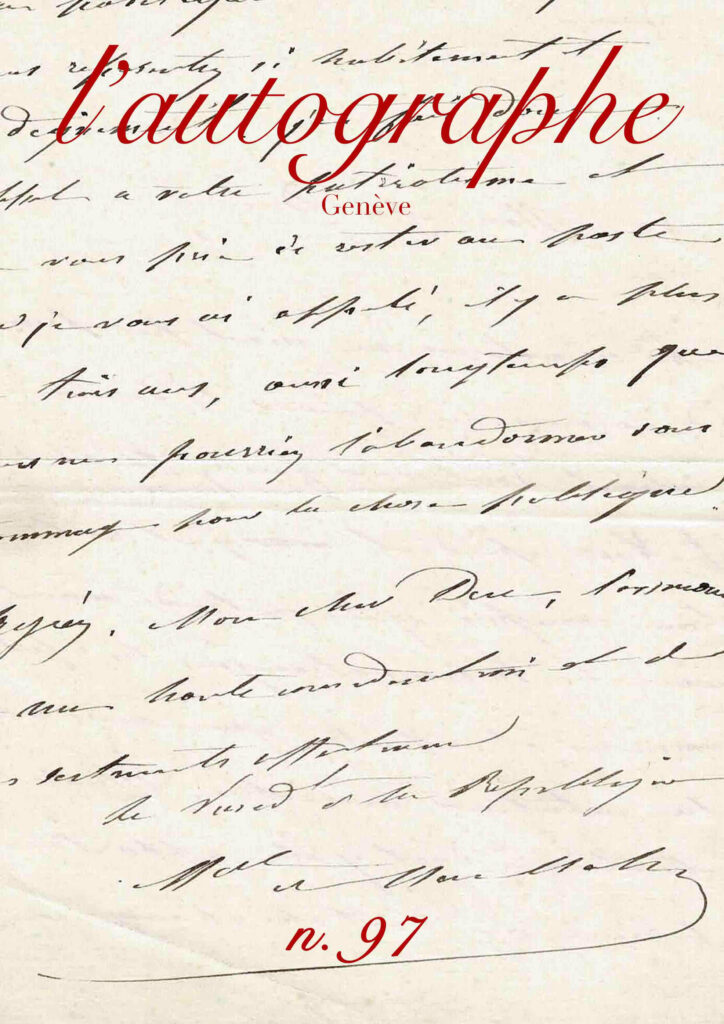 l'autographe
Genève
si habilement
a votre patriotisme et
vous prie de rester au poste
je vous ai appelé, il y a plus
trois ans, aussi longtemps que
pourriez l'abandonner sans
pour la chose politique.
Mon cher Duc,
ma haute considération et de
sentiments affectueux
le Présdt de la République
Mal de Mac Mahon
n. 97